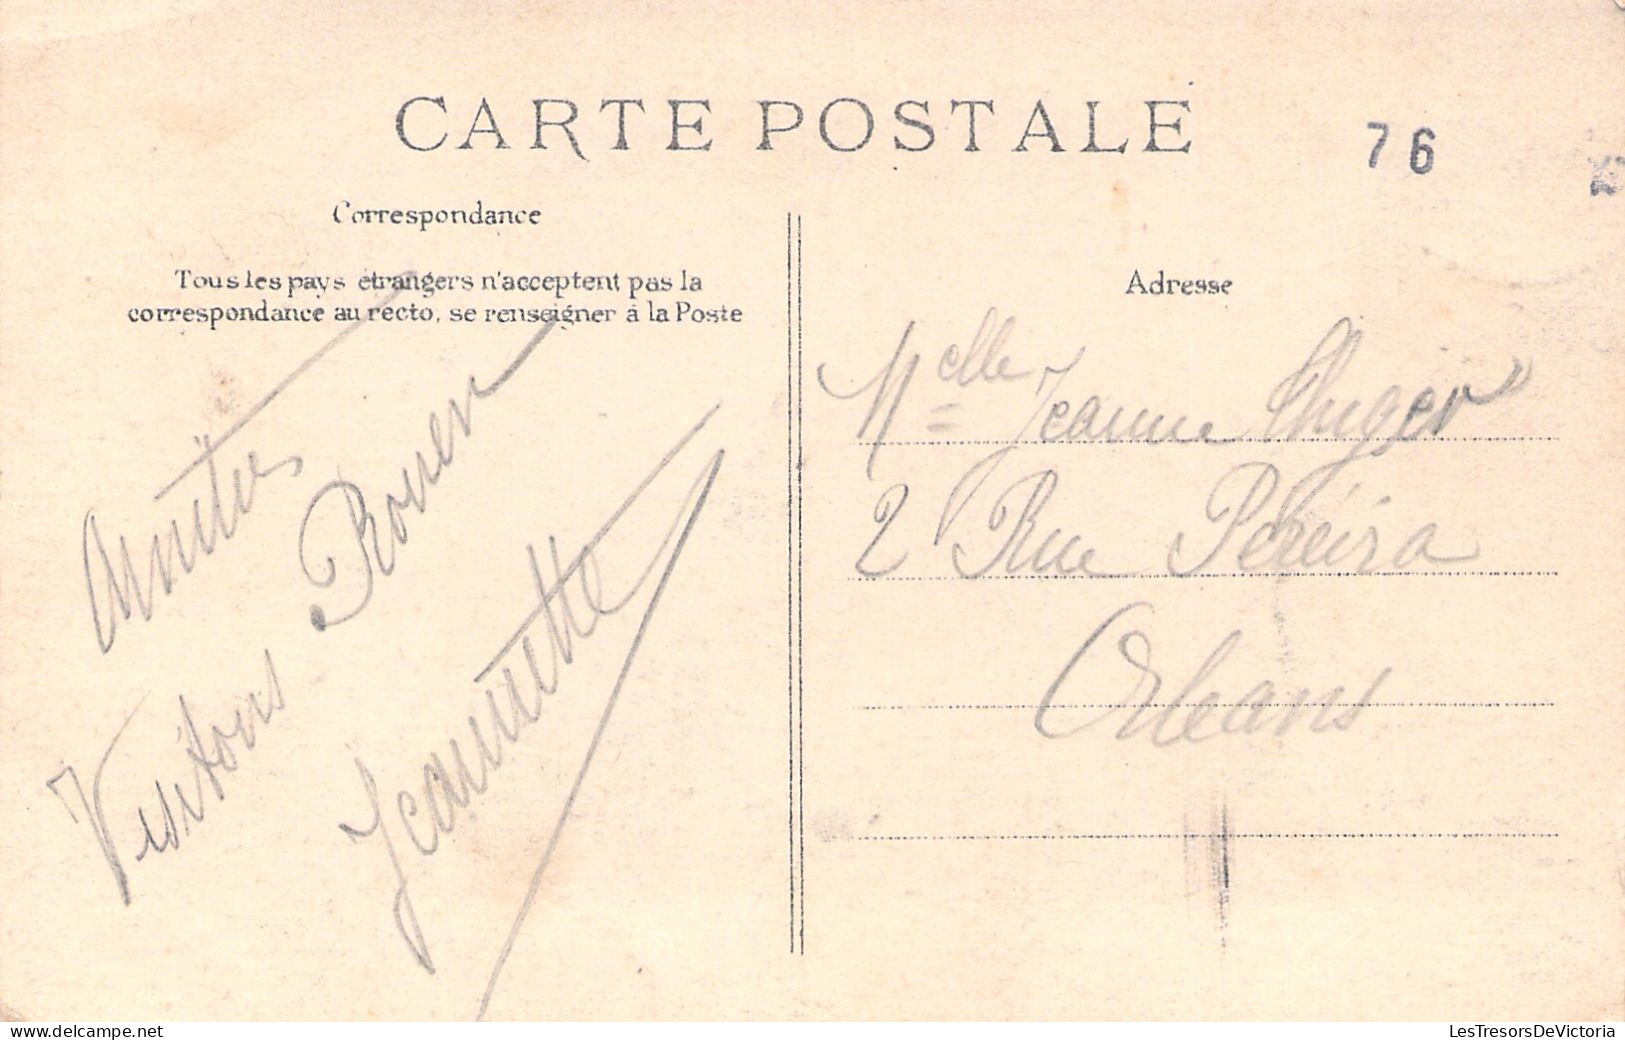 CARTE POSTALE
76
Correspondance
Tous les pays étrangers n'acceptent pas la
correspondance au recto, se renseigner à la Poste
Amitiés
Visitons Rouen
Jeannette
Adresse
Melle Jeanne
2 Rue Péreira
Orléans
LesTresorsDeVictoria
delcampe.net